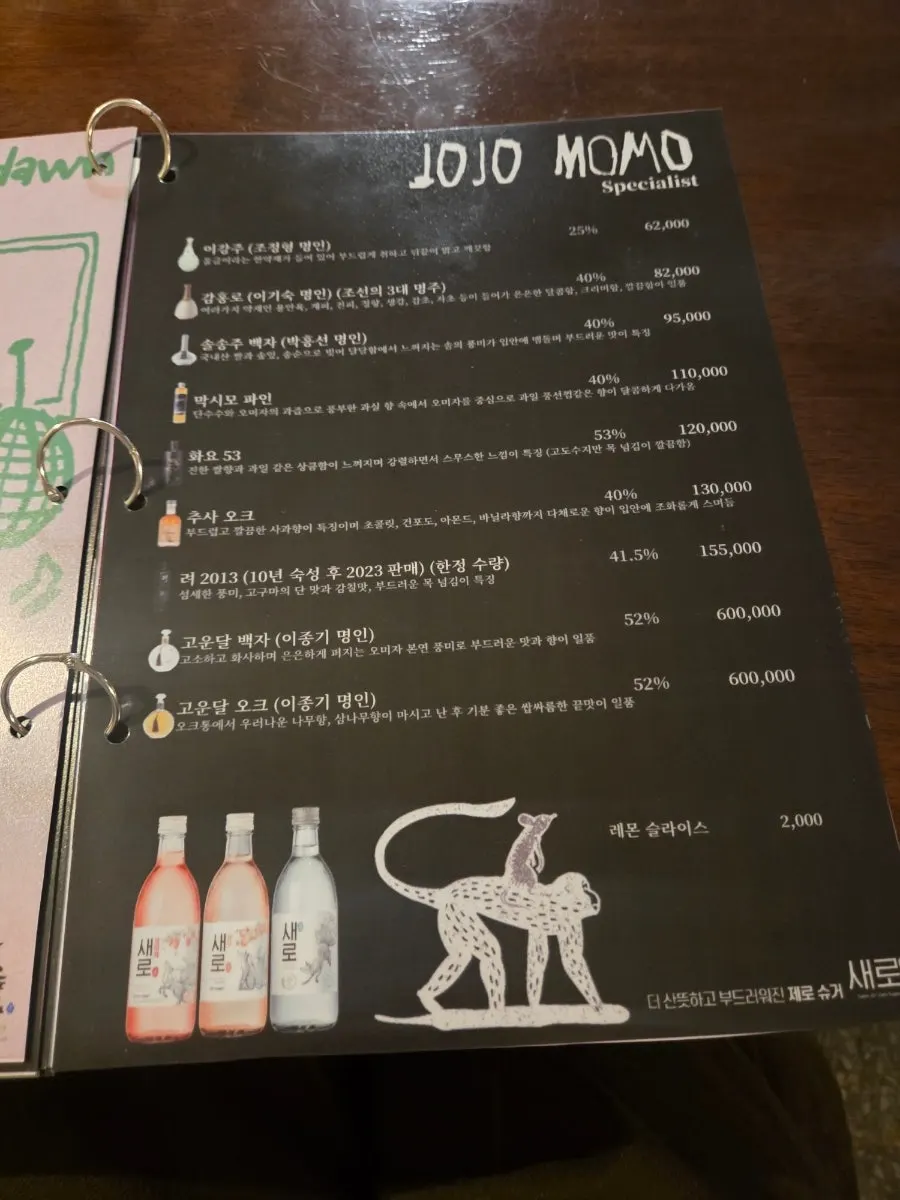 JOJO MOMO
Specialist
이강주 (조정형 명인) 25% 62,000
울금이라는 한약재가 들어 있어 부드럽게 취하고 뒤끝이 맑고 깨끗함
감홍로 (이기숙 명인) (조선의 3대 명주) 40% 82,000
여러가지 약재인 용안육, 계피, 진피, 정향, 생강, 감초, 자초 등이 들어가 은은한 달콤함, 크리미함, 깔끔함이 일품
솔송주 백자 (박흥선 명인) 40% 95,000
국내산 쌀과 솔잎, 송순으로 빚어 담담함에서 느껴지는 솔의 풍미가 입안에 맴돌며 부드러운 맛이 특징
막시모 파인 40% 110,000
단수수와 오미자의 과즙으로 풍부한 과실 향 속에서 오미자를 중심으로 과일 풍선껌같은 향이 달콤하게 다가옴
화요 53 53% 120,000
진한 쌀향과 과일 같은 상큼함이 느껴지며 강렬하면서 스무스한 느낌이 특징 (고도수지만 목 넘김이 깔끔함)
추사 오크 40% 130,000
부드럽고 깔끔한 사과향이 특징이며 초콜릿, 건포도, 아몬드, 바닐라향까지 다채로운 향이 입안에 조화롭게 스며듬
려 2013 (10년 숙성 후 2023 판매) (한정 수량) 41.5% 155,000
섬세한 풍미, 고구마의 단 맛과 감칠맛, 부드러운 목 넘김이 특징
고운달 백자 (이종기 명인) 52% 600,000
고소하고 화사하며 은은하게 퍼지는 오미자 본연 풍미로 부드러운 맛과 향이 일품
고운달 오크 (이종기 명인) 52% 600,000
오크통에서 우러나운 나무향, 삼나무향이 마시고 난 후 기분 좋은 쌉싸름한 끝맛이 일품
레몬 슬라이스 2,000
새로
새로
새로
더 산뜻하고 부드러워진 제로 슈거 새로